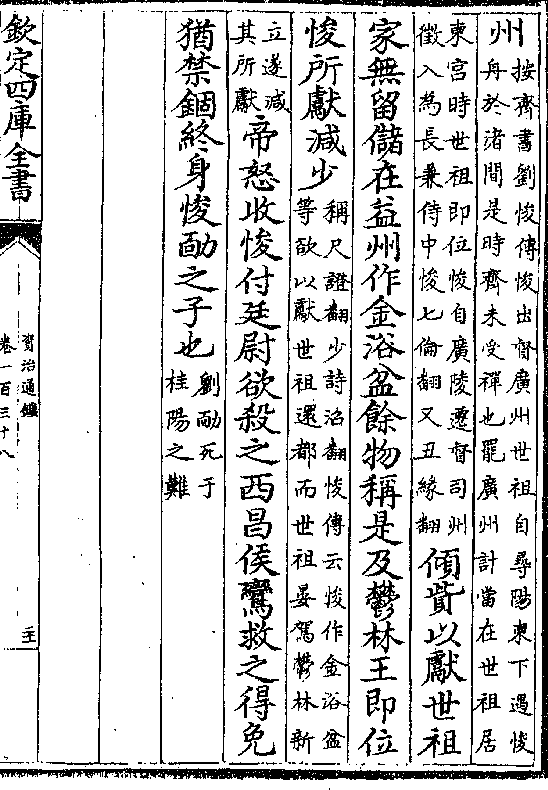 州按齊書劉悛傳悛出督廣州世祖自尋陽東下遇悛
舟於渚間是時齊未受禪也罷廣州計當在世祖居
東宮時世祖即位悛自廣陵遷督司州
徵入為長兼侍中悛七倫翻又丑緣翻傾貲以獻世祖
家無留儲在益州作金浴盆餘物稱是及鬱林王即位
悛所獻減少稱尺證翻少詩沼翻悛傳云悛作金浴盆
等欲以獻世祖還都而世祖晏駕鬱林新
立遂減
其所獻帝怒收悛付廷尉欲殺之西昌侯鸞救之得免
猶禁錮終身悛勔之子也劉勔死于
桂陽之難
欽定四庫全書
資治通鑑
卷一百三十八